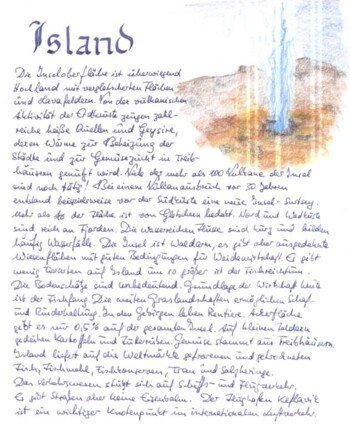 Island
Die Inseloberfläche ist überwiegend
Hochland mit vergletscherten Flächen
und Lavafeldern. Von der vulkanischen
Aktivität der Erdkruste zeugen zahl-
reiche heiße Quellen und Geysire,
deren Wärme zur Beheizung der
Städte und zur Gemüsezucht in Treib-
häusern genutzt wird. Viele der mehr als 100 Vulkane der Insel
sind noch tätig! Bei einem Vulkanausbruch vor 30 Jahren
entstand beispielsweise vor der Südküste eine neue Insel - Surtsey.
Mehr als der Fläche ist von Gletschern bedeckt. Nord und Westküste
sind reich an Fjorden. Die wasserreichen Flüsse sind kurz und bilden
häufig Wasserfälle. Die Insel ist Waldarm, es gibt aber ausgedehnte
Wiesenflächen mit guten Bedingungen für Weidewirtschaft. Es gibt
wenig Tierarten auf Island um so größer ist der Fischreichtum.
Die Bodenschätze sind unbedeutend. Grundlage der Wirtschaft heute
ist der Fischfang. Die weiten Graslandschaften ermöglichen Schaf
und Rinderhaltung. In den Gebirgen leben Rentiere. Ackerfläche
gibt es nur 0,5% auf der gesamten Insel. Auf kleinen Feldern
gedeihen Kartoffeln und Futterrüben. Gemüse stammt aus Treibhäusern.
Island liefert auf die Weltmärkte gefrorenen und getrockneten
Fisch, Fischmehl, Fischkonserven, Tran und Salzheringe.
Das Verkehrswesen stützt sich auf Schiffs- und Flugverkehr.
Es gibt Straßen aber keine Eisenbahn. Der Flughafen Keflavik
ist ein wichtiger Knotenpunkt im internationalen Luftverkehr.